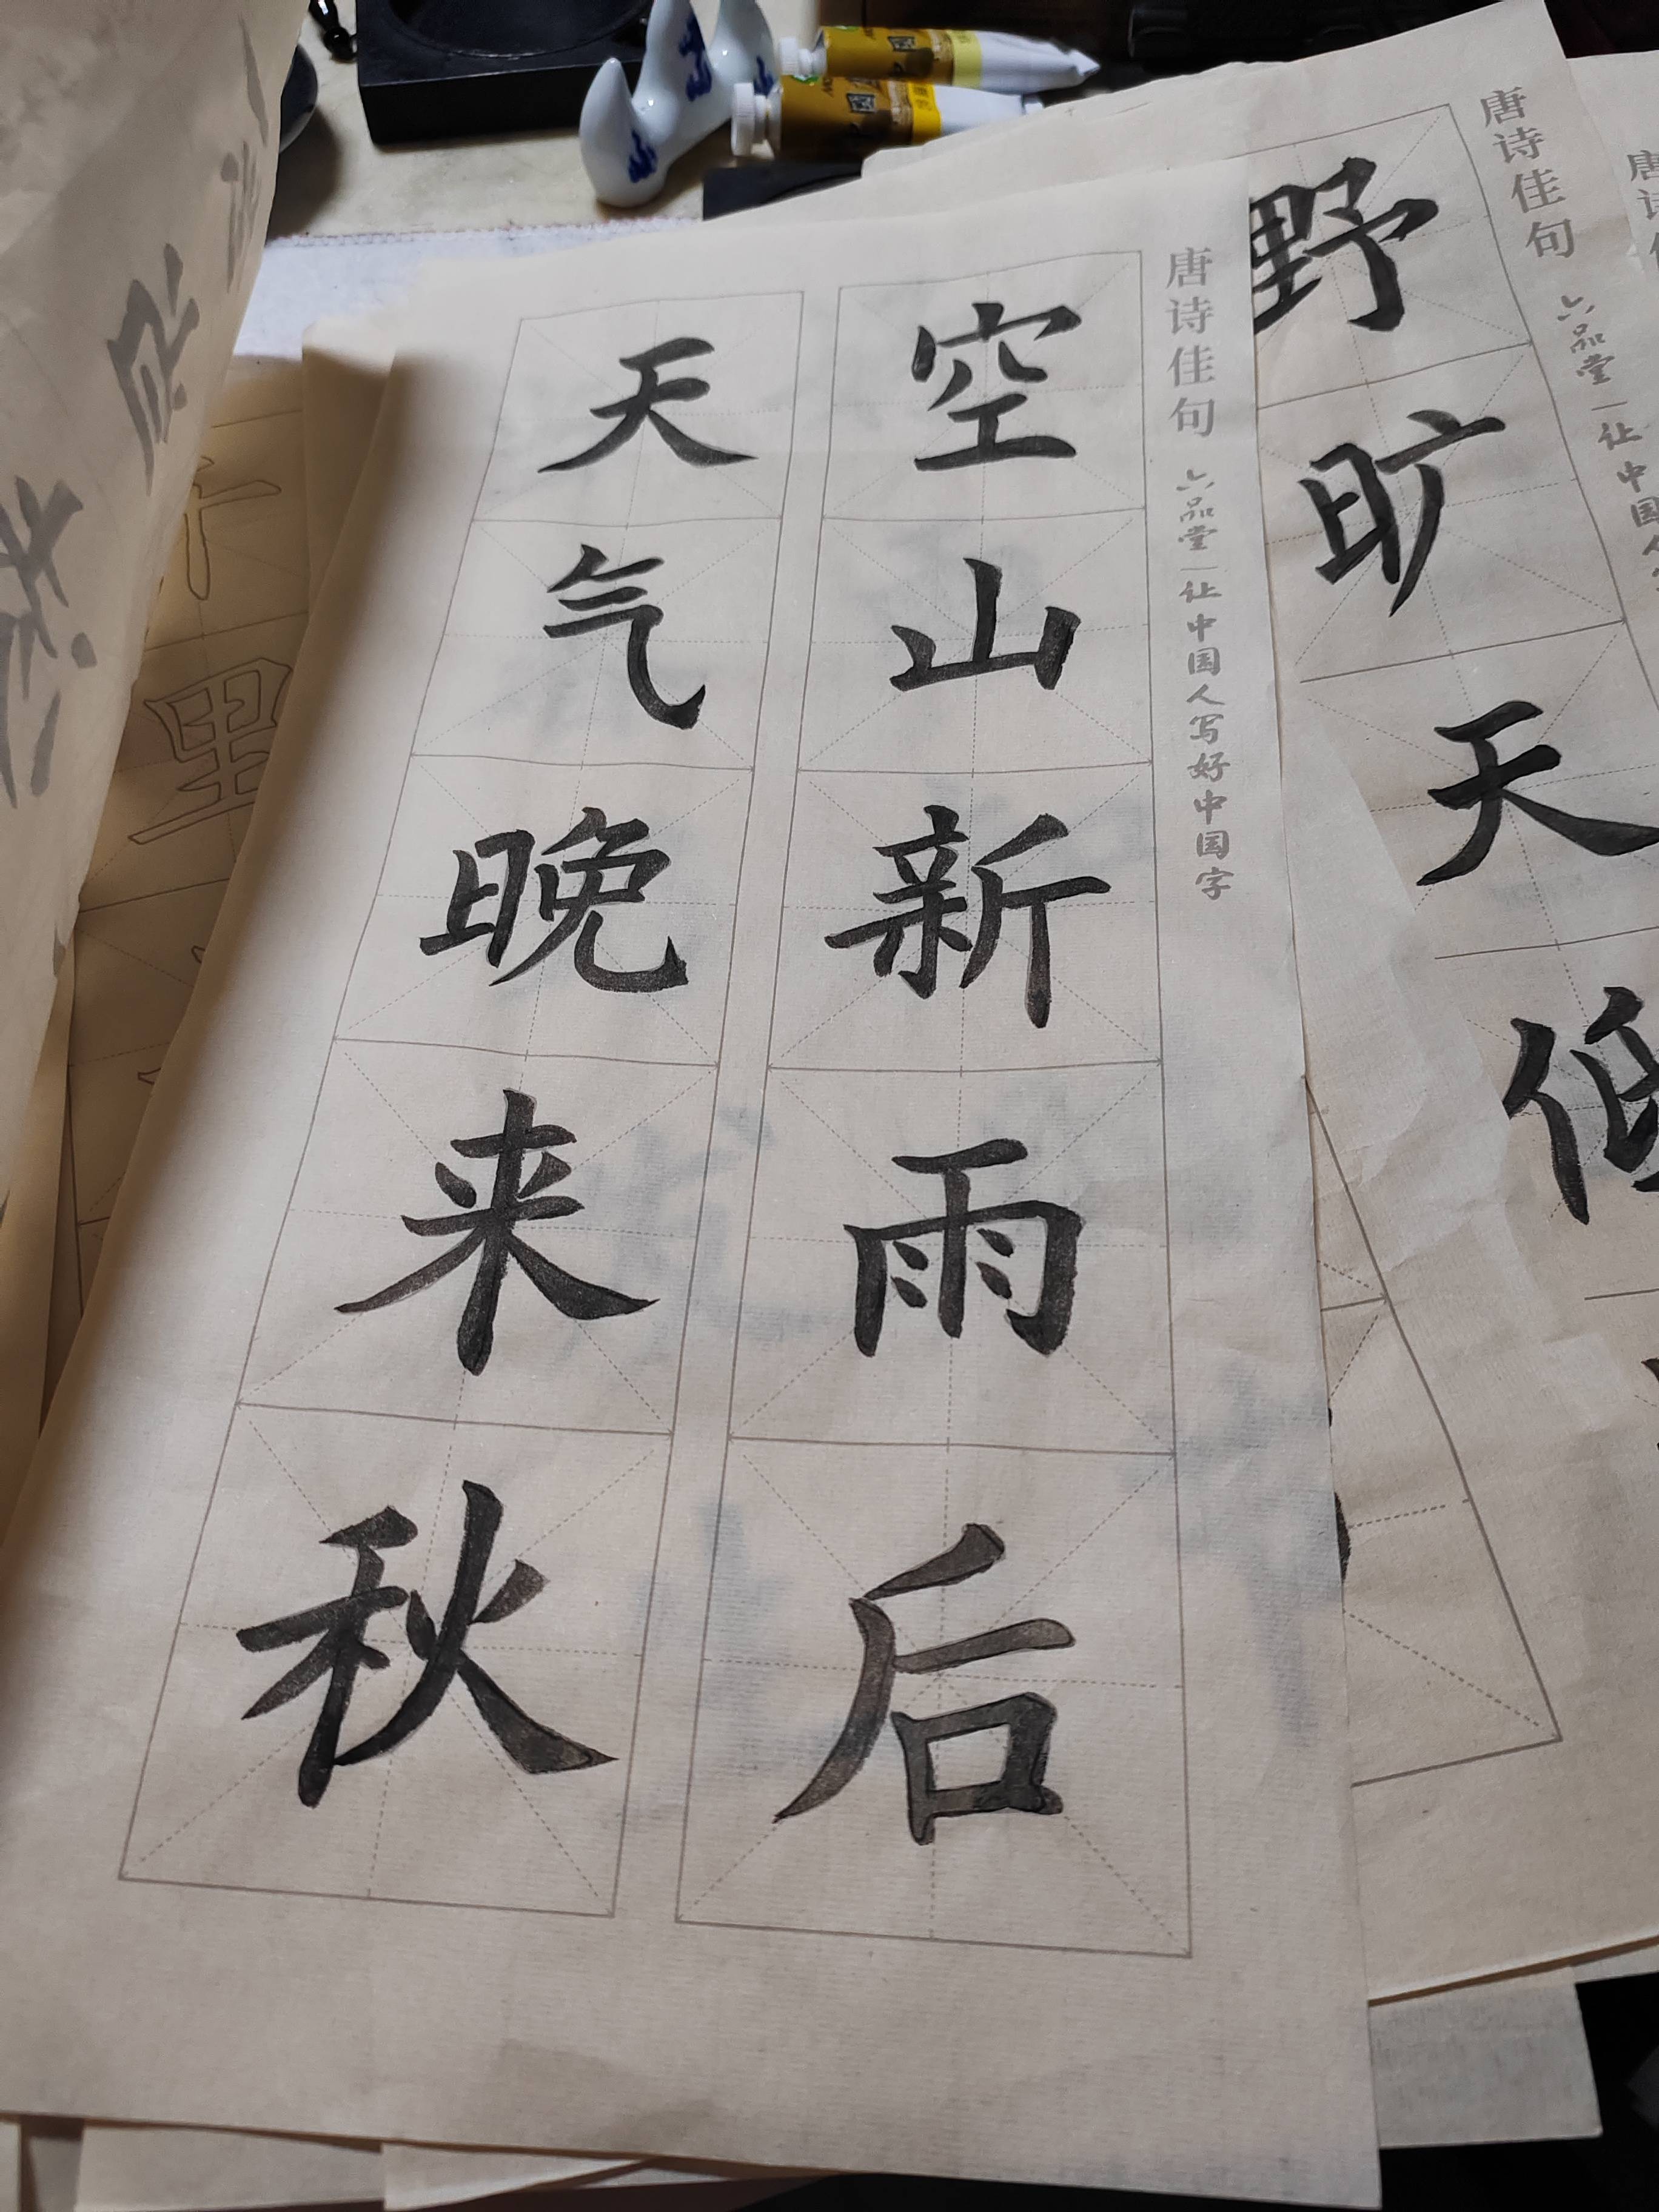 唐诗佳句 六品堂|让中国人写好中国字
空山新雨后
天气晚来秋
唐诗佳句 六品堂|让中国
野旷天低
唐诗
里